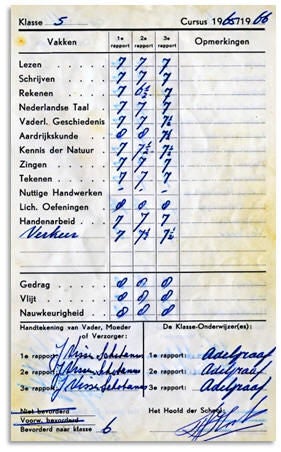 Klasse 5 Cursus 1965/1966
Vakken 1e rapport 2e rapport 3e rapport Opmerkingen
Lezen 7 7 7
Schrijven 7 7 7
Rekenen 7 6½ 7
Nederlandse Taal 7 7 7
Vaderl. Geschiedenis 7 7 7½
Aardrijkskunde 8 8 7½
Kennis der Natuur 7 7½ 7½
Zingen 7 7 7
Tekenen 7 7 7
Nuttige Handwerken - - -
Lich. Oefeningen 8 8 8
Handenarbeid 7 7 7
Verkeer 7 7½ 7½
Gedrag 8 8 8
Vlijt 8 8 8
Nauwkeurigheid 8 8 8
Handtekening van Vader, Moeder of Verzorger: De Klasse-Onderwijzer(es):
1e rapport: 1e rapport: Adelgraaf
2e rapport: 2e rapport: Adelgraaf
3e rapport: 3e rapport: Adelgraaf
Niet bevorderd
Voorw. bevorderd Het Hoofd der School:
Bevorderd naar klasse 6